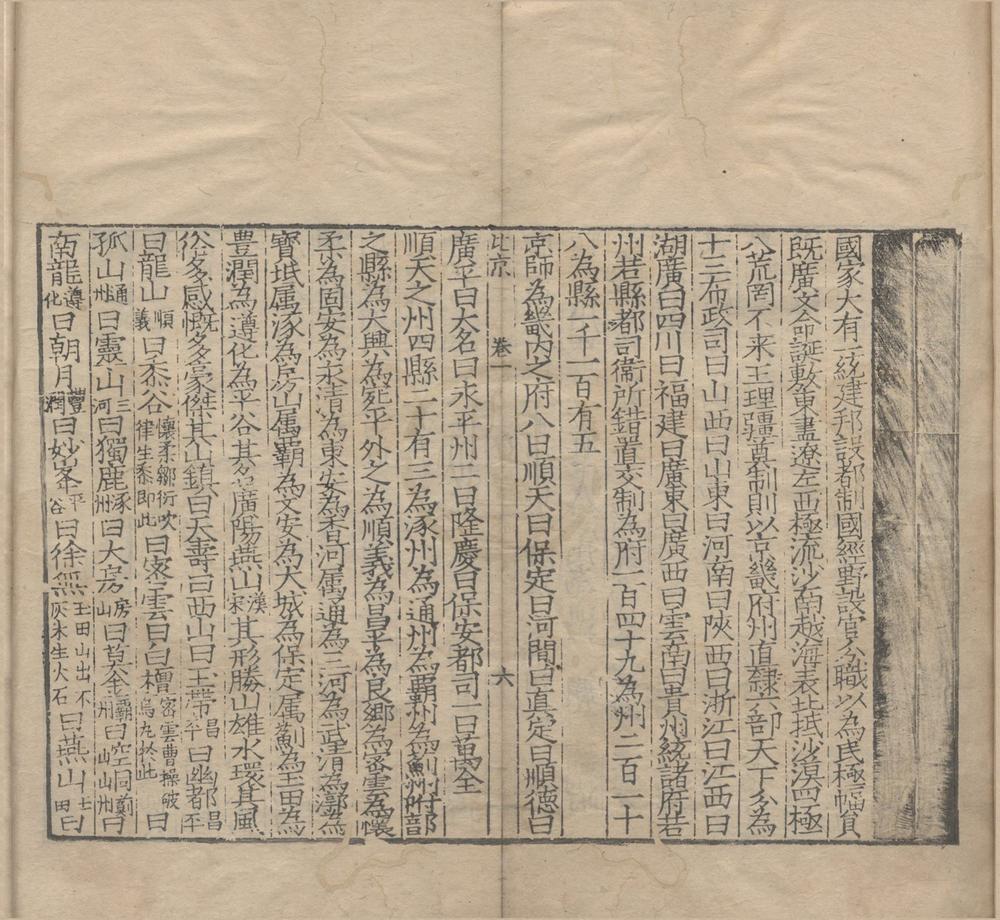 國家大有一統建邦設都制國經野設官分職以為民極幅員
既廣文命誕敷東盡遼左西極流沙南越海表北抵沙漠四極
八荒罔不来王理疆奠制則以京畿府州直隸六部天下分為
十三布政司曰山西曰山東曰河南曰陝西曰浙江曰江西曰
湖廣曰四川曰福建曰廣東曰廣西曰雲南曰貴州統諸府若
州若縣都司衞所錯置交制為府一百四十九為州二百一十
八為縣一千一百有五
京師為畿内之府八曰順天曰保定曰河間曰真定曰順德曰
北京 卷一 六
廣平曰大名曰永平州二曰隆慶曰保安都司一曰萬全
順天之州四縣二十有三為涿州為通州為霸州為薊州附郭
之縣為大興為宛平外之為順義為昌平為良鄉為密雲為懷
柔為固安為永清為東安為香河属通為三河為武清為漷為
寶坻属涿為房山属霸為文安為大城為保定属薊為玉田為
豊潤為遵化為平谷其名廣陽燕山漢宋其形勝山雄水環其風
俗多感慨多豪傑其山鎮曰天壽曰西山曰玉帶昌平曰幽都昌平
曰龍山順義曰黍谷懷柔鄒衍吹律生黍即此曰密雲曰白檀密雲曹操破烏丸於此曰
孤山通州曰靈山三河曰獨鹿涿州曰大房房山曰草金霸州曰空同薊州曰
南龍遵化曰朝月豐潤曰妙峯平谷曰徐無玉田山出不灰木生火石曰燕山玉田曰